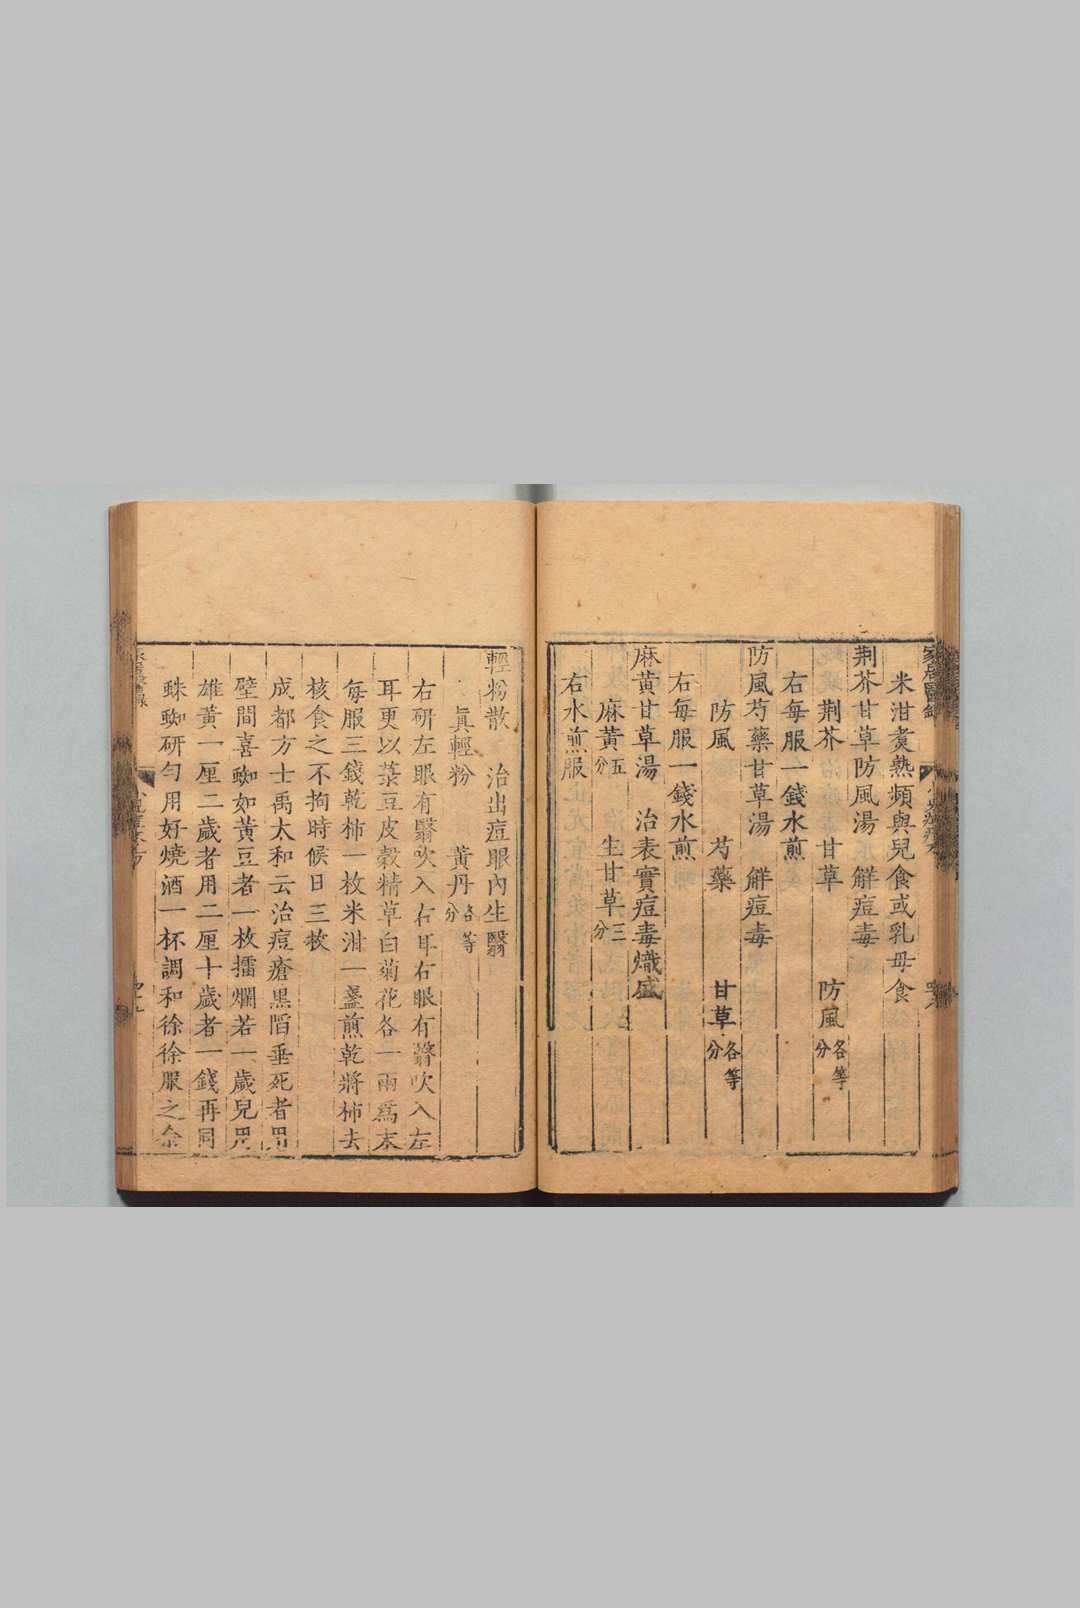 米泔煑熟頻與兒食或乳母食
荆芥甘草防風湯 解痘毒
荆芥 甘草 防風各等分
右每服一錢水煎
防風芍藥甘草湯 解痘毒
防風 芍藥 甘草各等分
右每服一錢水煎
麻黄甘草湯 治表實痘毒熾盛
麻黄五分 生甘草三分
右水煎服
輕粉散 治出痘眼內生翳
眞輕粉 黃丹各等分
右研左眼有翳吹入右耳右眼有翳吹入左
耳更以菉豆皮穀精草白菊花各一兩爲末
每服三錢乾柿一枚米泔一盞煎乾將柿去
核食之不拘時候日三枚
成都方士禹太和云治痘瘡黒陷垂死者用
壁間喜蜘如黃豆者一枚擂爛若一歲兒用
雄黃一厘二歲者用二厘十歲者一錢再同
蛛蜘研勻用好燒酒一杯調和徐徐服之